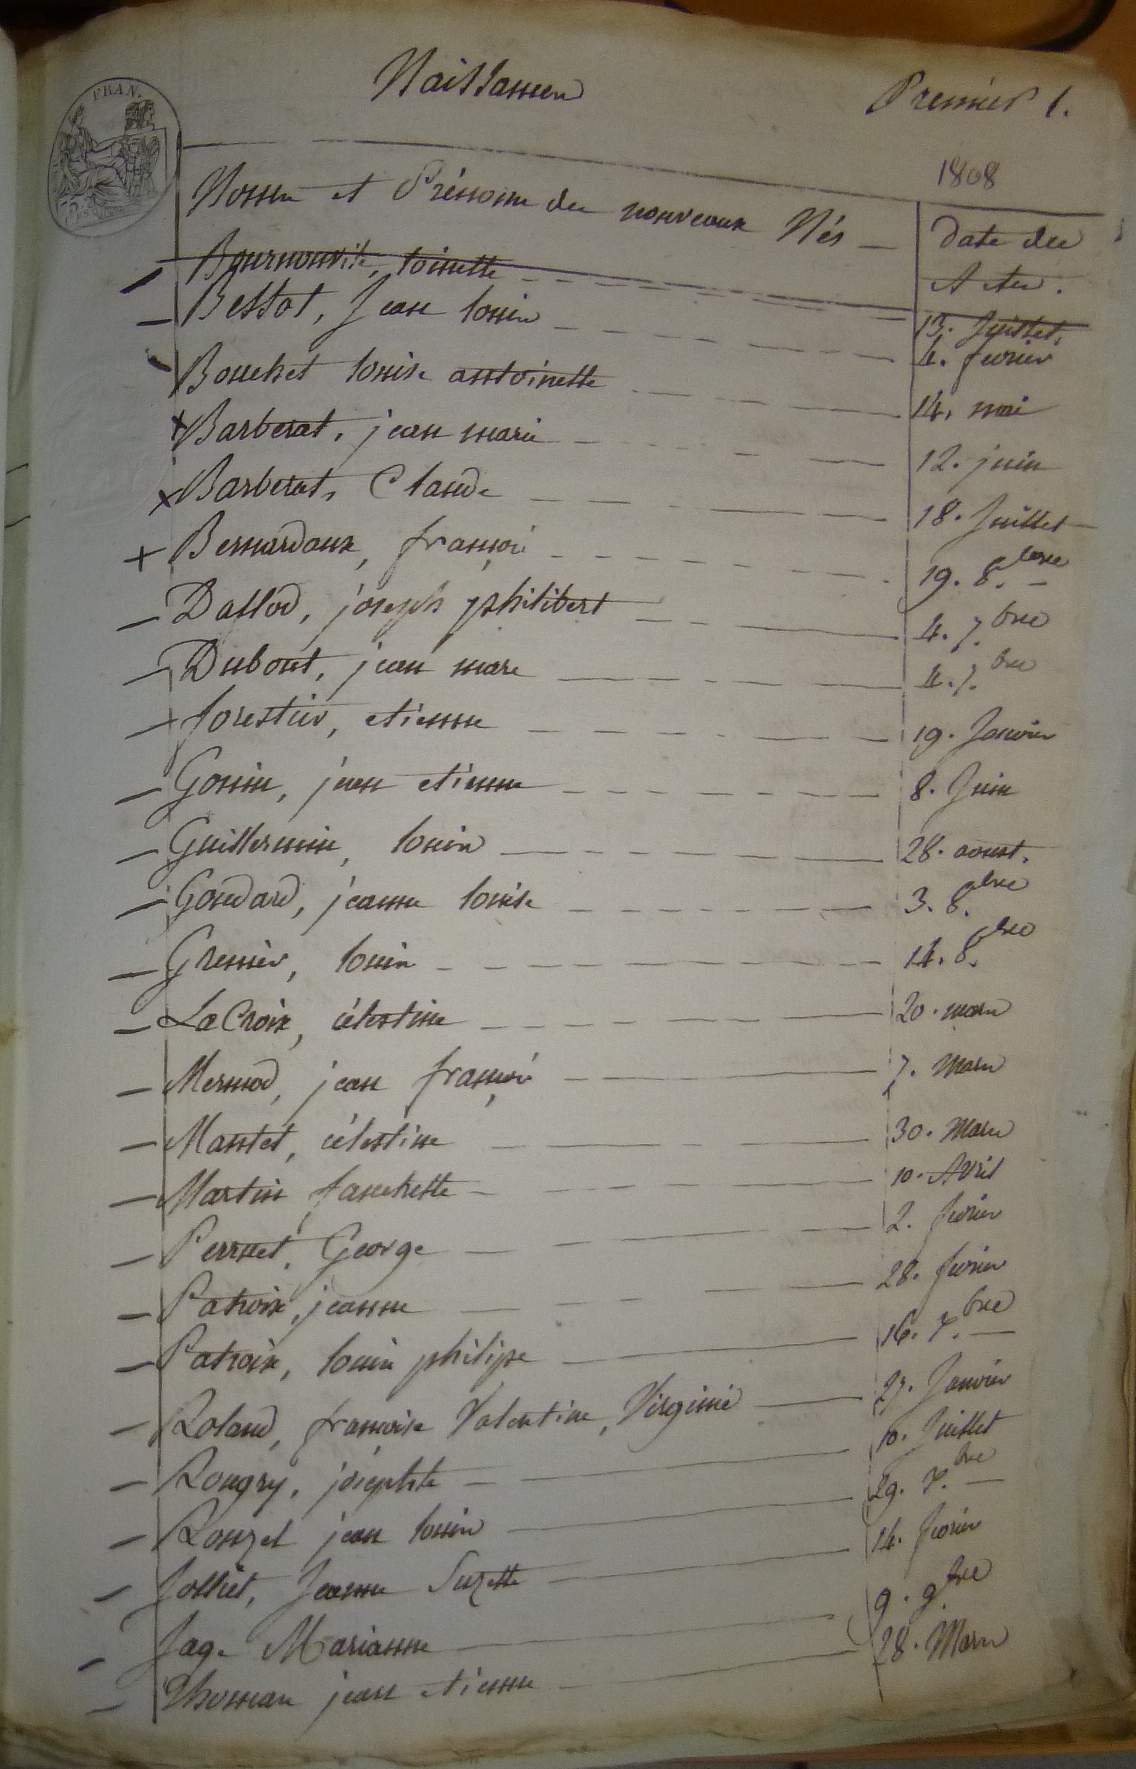 FRAN.
Naissances
Premier 1.
1808
Noms et Prénoms des nouveaux Nés — Date des
Actes.
Bournonville, Louise 13. Juillet.
Bessot, Jean Louis 4. fevrier
Bouchet Louise antoinette 14. mai
Barberat, jean marie 12. juin
Barberat, Claude 18. Juillet
Bernardaux, françois 19. 8.bre
Daflod, joseph philibert 4. 7.bre
Dubout, jean marc 4. 7.bre
forestier, etienne 19. Janvier
Gonin, jean etienne 8. Juin
Guillermin, Louis 28. aoust.
Goudard, jeanne Louise 3. 8.bre
Grenier, Louis 14. 8.bre
LaCroix, célestine 20. mars
Mermod, jean françois 7. Mars
Mantet, célestine 30. Mars
Martin, fanchette 10. Avril
Perruet, George 2. fevrier
Patroix, jeanne 28. fevrier
Patroix, Louis philipe 16. 7.bre
Roland, françoise Valentine, Virginie 27. Janvier
Rougry, josephte 10. Juillet
Rouzet jean Louis 29. 7.bre
Jolliet, Jeanne Suzette 14. fevrier
Jage Marianne 9. 9bre
Thomas jean etienne 28. Mars